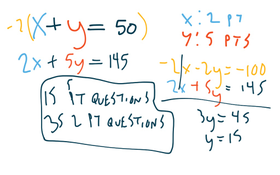 -2(x+y=50)
2x+5y=145
15 5 PT QUESTIONS
35 2 PT QUESTIONS
X: 2 PT
Y: 5 PTS
-2x-2y=-100
2x+5y=145
3y=45
y=15